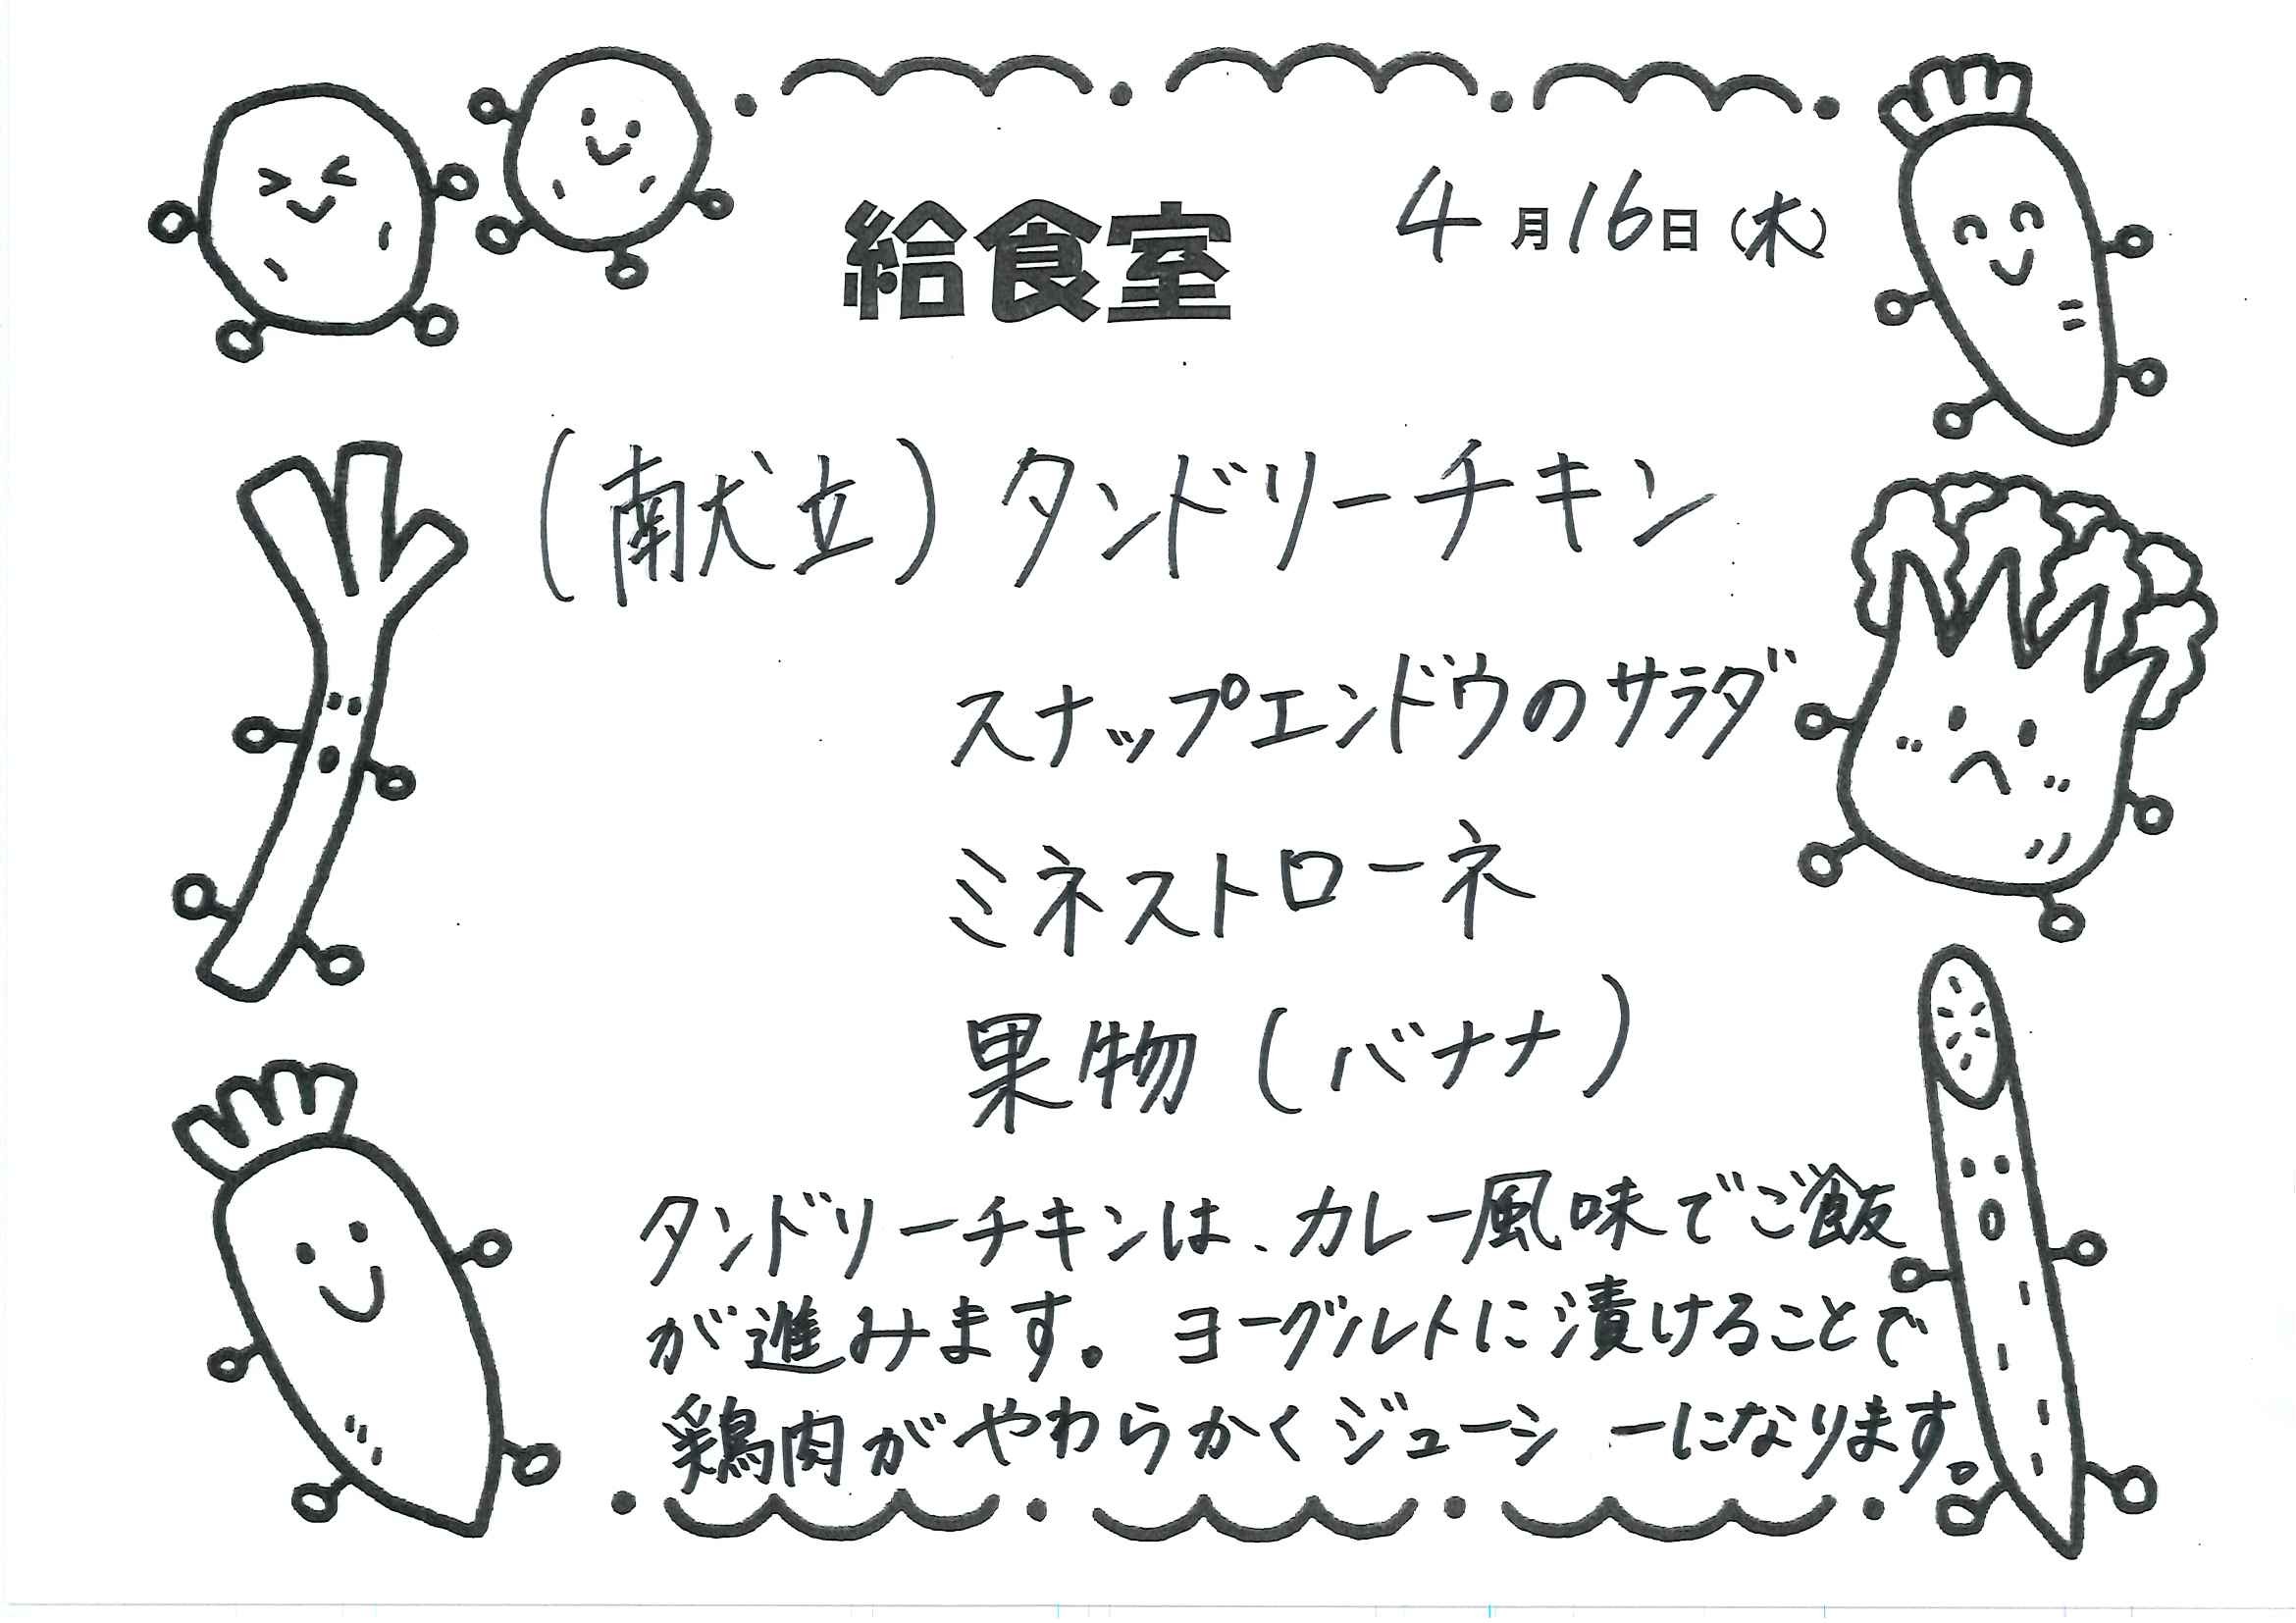 給食室
4月16日(木)
(献立)タンドリーチキン
スナップエンドウのサラダ
ミネストローネ
果物(バナナ)
タンドリーチキンは、カレー風味でご飯
が進みます。ヨーグルトに漬けることで
鶏肉がやわらかくジューシーになります。